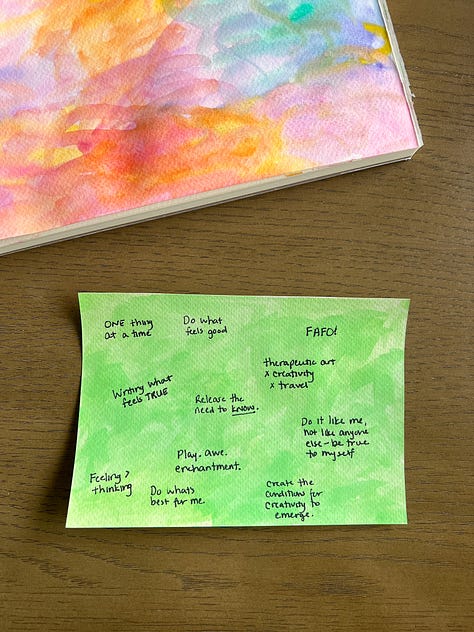 ONE thing
at a time
Do what
feels good
FAFO!
therapeutic art
x creativity
x travel
Writing what
feels TRUE
Release the
need to know.
Do it like me,
not like anyone
else - be true
to myself
Play. awe.
enchantment.
Feeling >
thinking
Do whats
best for me.
Create the
condition for
creativity to
emerge.